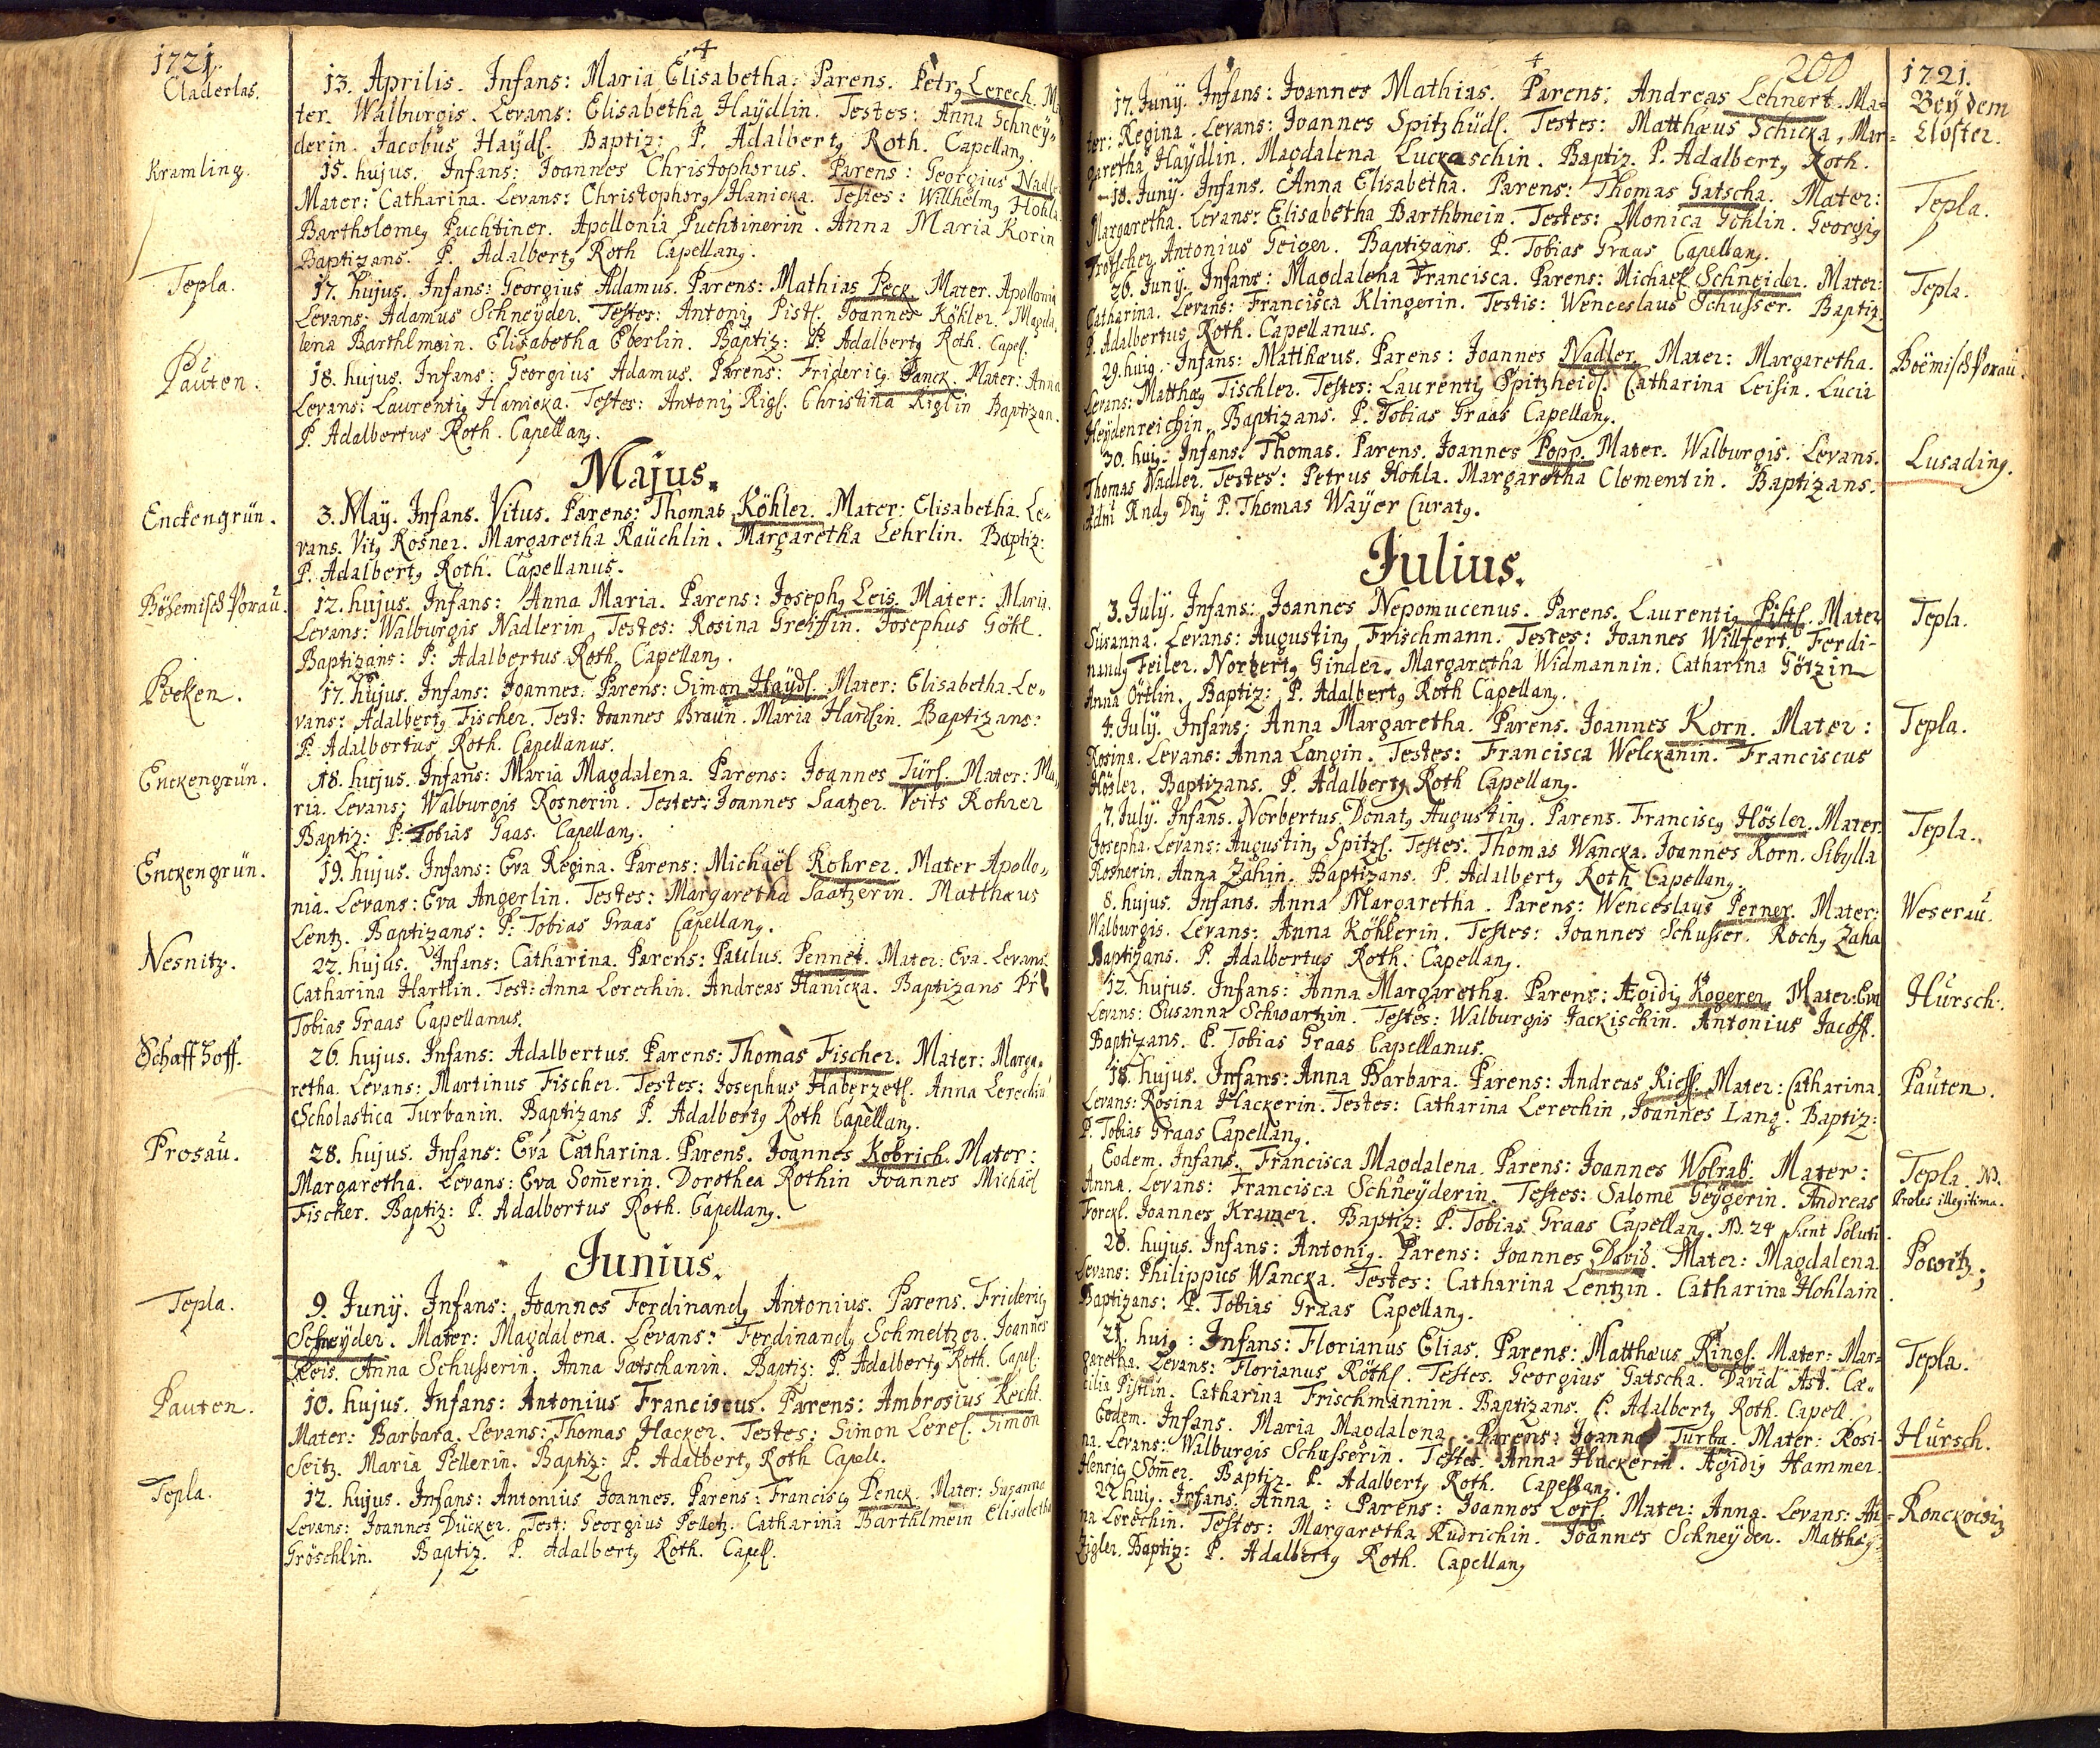 1721.
Claderlas.
13. Aprilis. Infans: Maria Elisabetha: Parens. Petrq Lerech. Ma
ter. Walburgis. Levans: Elisabetha Haÿdlin. Testes: Anna Schneÿ=
derin. Jacobus Haÿdl. Baptiz: P. Adalbertq Roth. Capellanq.
Kramling.
15. hujus. Infans: Joannes Christophorus. Parens: Georgius Nadle
Mater: Catharina. Levans: Christophorq Hanicka. Testes: Willhelmq Hohla
Bartholomeq Puchtiner. Apollonia Puchtinerin. Anna Maria Korin
Baptizans. P. Adalbertq Roth Capellanq.
Tepla.
17. hujus. Infans: Georgius Adamus. Parens: Mathias Peck Mater. Apollonia
Levans: Adamus Schneÿder. Testes: Antoniq Pistl. Joannes Köhler. Magda
lena Barthlmein. Elisabetha Eberlin. Baptiz: P. Adalbertq Roth. Capell.
Pauten.
18. hujus. Infans: Georgius Adamus. Parens: Fridericq Janck. Mater: Anna
Levans: Laurentiq Hanicka. Testes: Antoniq Rigl. Christina Riglin Baptizan.
P. Adalbertus Roth. Capellanq.
Majus.
Enckengrün.
3. Maÿ. Infans. Vitus. Parens: Thomas Köhler. Mater: Elisabetha. Le=
vans. Vitq Rosner. Margaretha Raüchlin. Margaretha Lehrlin. Baptiz:
P. Adalbertq Roth. Capellanus.
Böhemisch Porau.
12. hujus. Infans: Anna Maria. Parens: Josephq Leis. Mater: Maria.
Levans: Walburgis Nadlerin Testes: Rosina Greiffin. Josephus Gökl.
Baptizans: P. Adalbertus Roth Capellanq.
Pocken.
17. hujus. Infans: Joannes. Parens: Simon Haÿdl. Mater: Elisabetha. Le=
vans: Adalbertq Fischer. Test: Joannes Braun. Maria Hartlin. Baptizans:
P. Adalbertus Roth. Capellanus.
Enckengrün.
18. hujus. Infans: Maria Magdalena. Parens: Joannes Türl. Mater: Ma=
ria. Levans: Walburgis Rosnerin. Testes: Joannes Saatzer. Veits Rohrer
Baptiz: P. Tobias Gaas. Capellanq.
Enckengrün.
19. hujus. Infans: Eva Regina. Parens: Michaël Rohrer. Mater Apollo=
nia. Levans: Eva Angerlin. Testes: Margaretha Saatzerin. Matthæus
Lentz. Baptizans: P. Tobias Graas Capellanq.
Nesnitz.
22. hujus. Infans: Catharina. Parens: Paulus. Pennet. Mater: Eva. Levans
Catharina Hartlin. Test: Anna Lerechin. Andreas Hanicka. Baptizans Pr
Tobias Graas Capellanus.
Schaffhoff.
26. hujus. Infans: Adalbertus. Parens: Thomas Fischer. Mater: Marga=
retha. Levans: Martinus Fischer. Testes: Josephus Haberzetl. Anna Lerechin
Scholastica Turbanin. Baptizans P. Adalbertq Roth Capellanq.
Prosau.
28. hujus. Infans: Eva Catharina. Parens. Joannes Kobrich. Mater:
Margaretha. Levans: Eva Som̄erin. Dorothea Rothin Joannes Michaël
Fischer. Baptiz: P. Adalbertus Roth. Capellanq.
Junius.
Tepla.
9. Junÿ. Infans: Joannes Ferdinandq Antonius. Parens. Fridericq
Schneÿder. Mater: Magdalena. Levans: Ferdinandq Schmeltzer. Joannes
Reis. Anna Schusserin. Anna Gatschanin. Baptiz: P. Adalbertq Roth. Capel:
Pauten.
10. hujus. Infans: Antonius Franciscus. Parens: Ambrosius Recht.
Mater: Barbara. Levans: Thomas Hacker. Testes: Simon Lerel. Simon
Seitz. Maria Pellerin. Baptiz: P. Adalbertq Roth Capell.
Tepla.
12. hujus. Infans: Antonius Joannes. Parens: Franciscq Penck. Mater: Susanna
Levans: Joannes Dücker. Test: Georgius Pelletz. Catharina Barthlmein Elisabetha
Gröschlin. Baptiz. P. Adalbertq Roth. Capell.
200
1721.
Beÿ dem
Closter.
17. Junÿ. Infans: Joannes Mathias. Parens: Andreas Lehnert. Ma=
ter: Regina. Levans: Joannes Spitzhüdl. Testes: Matthæus Schicka, Mar=
garetha Haÿdlin. Magdalena Luckaschin. Baptiz. P. Adalbertq Roth.
Tepla.
18. Junÿ. Infans. Anna Elisabetha. Parens: Thomas Gatscha. Mater:
Margaretha. Levans: Elisabetha Barthlmein. Testes: Monica Göhlin. Georgiq
Trötscher Antonius Geiger. Baptizans. P. Tobias Graas Capellanq.
Tepla.
26. Junÿ. Infans: Magdalena Francisca. Parens: Michael Schneider. Mater:
Catharina. Levans: Francisca Klingerin. Testis: Wenceslaus Schusser. Baptiz.
P. Adalbertus Roth. Capellanus.
Böemisch Porau.
29. huiq. Infans: Matthæus. Parens: Joannes Nadler Mater: Margaretha.
Levans: Matthæq Tischler. Testes: Laurentiq Spitzheidl. Catharina Leisin. Lucia
Heÿdenreichin. Baptizans. P. Tobias Graas Capellanq.
Lusading.
30. huiq. Infans. Thomas. Parens. Joannes Popp. Mater. Walburgis. Levans.
Thomas Nadler. Testes: Petrus Hohla. Margaretha Clementin. Baptizans.
Adm Rndq Dnq P. Thomas Waÿer Curatq.
Julius.
Tepla.
3. Julÿ. Infans: Joannes Nepomucenus. Parens. Laurentiq Pistl. Mater
Susanna. Levans: Augustinq Frischmann. Testes: Joannes Willfert. Ferdi-
nandq Feiler. Norbertq Ginder. Margaretha Widmannin. Catharina Götzin
Anna Örtlin. Baptiz: P. Adalbertq Roth Capellanq.
Tepla.
4. Julÿ. Infans: Anna Margaretha. Parens. Joannes Korn. Mater:
Rosina. Levans: Anna Langin. Testes: Francisca Welckanin. Franciscus
Hösler. Baptizans. P. Adalbertq Roth Capellanq.
Tepla.
7. Julÿ. Infans. Norbertus Donatq Augustinq. Parens. Franciscq Hösler. Mater.
Josepha. Levans: Augustinq Spitzl. Testes. Thomas Wancka. Joannes Korn. Sibylla
Rosnerin. Anna Zahin. Baptizans. P. Adalbertq Roth Capellanq.
Weserau.
8. hujus. Infans. Anna Margaretha. Parens: Wenceslaus Perner. Mater:
Walburgis. Levans: Anna Köhlerin. Testes: Joannes Schusser. Rochq Zaha
Baptizans. P. Adalbertus Roth. Capellanq.
Hursch.
12. hujus. Infans: Anna Margaretha. Parens: Ægidiq Kogerer. Mater: Eva
Levans: Susanna Schwartzin. Testes: Walburgis Jackischin. Antonius Jacoff.
Baptizans. P. Tobias Graas Capellanus.
Pauten.
18. hujus. Infans: Anna Barbara. Parens: Andreas Rieff. Mater: Catharina.
Levans: Rosina Hackerin. Testes: Catharina Lerechin, Joannes Lang. Baptiz:
P. Tobias Graas Capellanq.
Tepla. NB.
Proles illegitima.
Eodem. Infans. Francisca Magdalena. Parens: Joannes Wolrab. Mater:
Anna. Levans: Francisca Schneÿderin. Testes: Salome Geÿgerin. Andreas
Forckl. Joannes Kramer. Baptiz: P. Tobias Graas Capellanq. NB. 24 sunt Soluti.
Powitz.
28. hujus. Infans: Antoniq. Parens: Joannes David. Mater: Magdalena.
Levans: Philippus Wancka. Testes: Catharina Lentzin. Catharina Hohlain
Baptizans: P. Tobias Graas Capellanq.
Tepla.
21. huiq: Infans: Florianus Elias. Parens: Matthæus Ringl. Mater: Mar=
garetha. Levans: Florianus Röthl. Testes. Georgius Gatscka. David Ast. Cæ=
cilia Pistlin. Catharina Frischmannin. Baptizans. P. Adalbertq Roth. Capell.
Hursch.
Eodem. Infans. Maria Magdalena. Parens: Joannes Turba. Mater: Rosi-
na. Levans: Walburgis Schusserin. Testes. Anna Huckerin. Ægidiq Hammer.
Henricq Som̄er. Baptiz. P. Adalbertq Roth. Capellanq.
Ronckowitz
22 huiq. Infans. Anna: Parens: Joannes Lerl. Mater: Anna. Levans: An=
na Lerechin. Testes: Margaretha Rudrichin. Joannes Schneÿder. Matthæq
Zigler. Baptiz: P. Adalbertq Roth. Capellanq